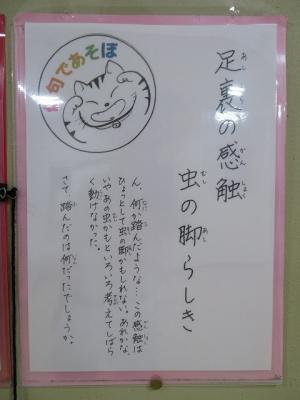 俳句であそぼ
足裏の感触
虫の脚らしき
ん、何か踏んだような…この感触は
ひょっとして虫の脚かもしれない。あれかな、
いやあの虫かもといろいろ考えてしばら
く動けなかった。
さて踏んだのは何だったでしょうか。